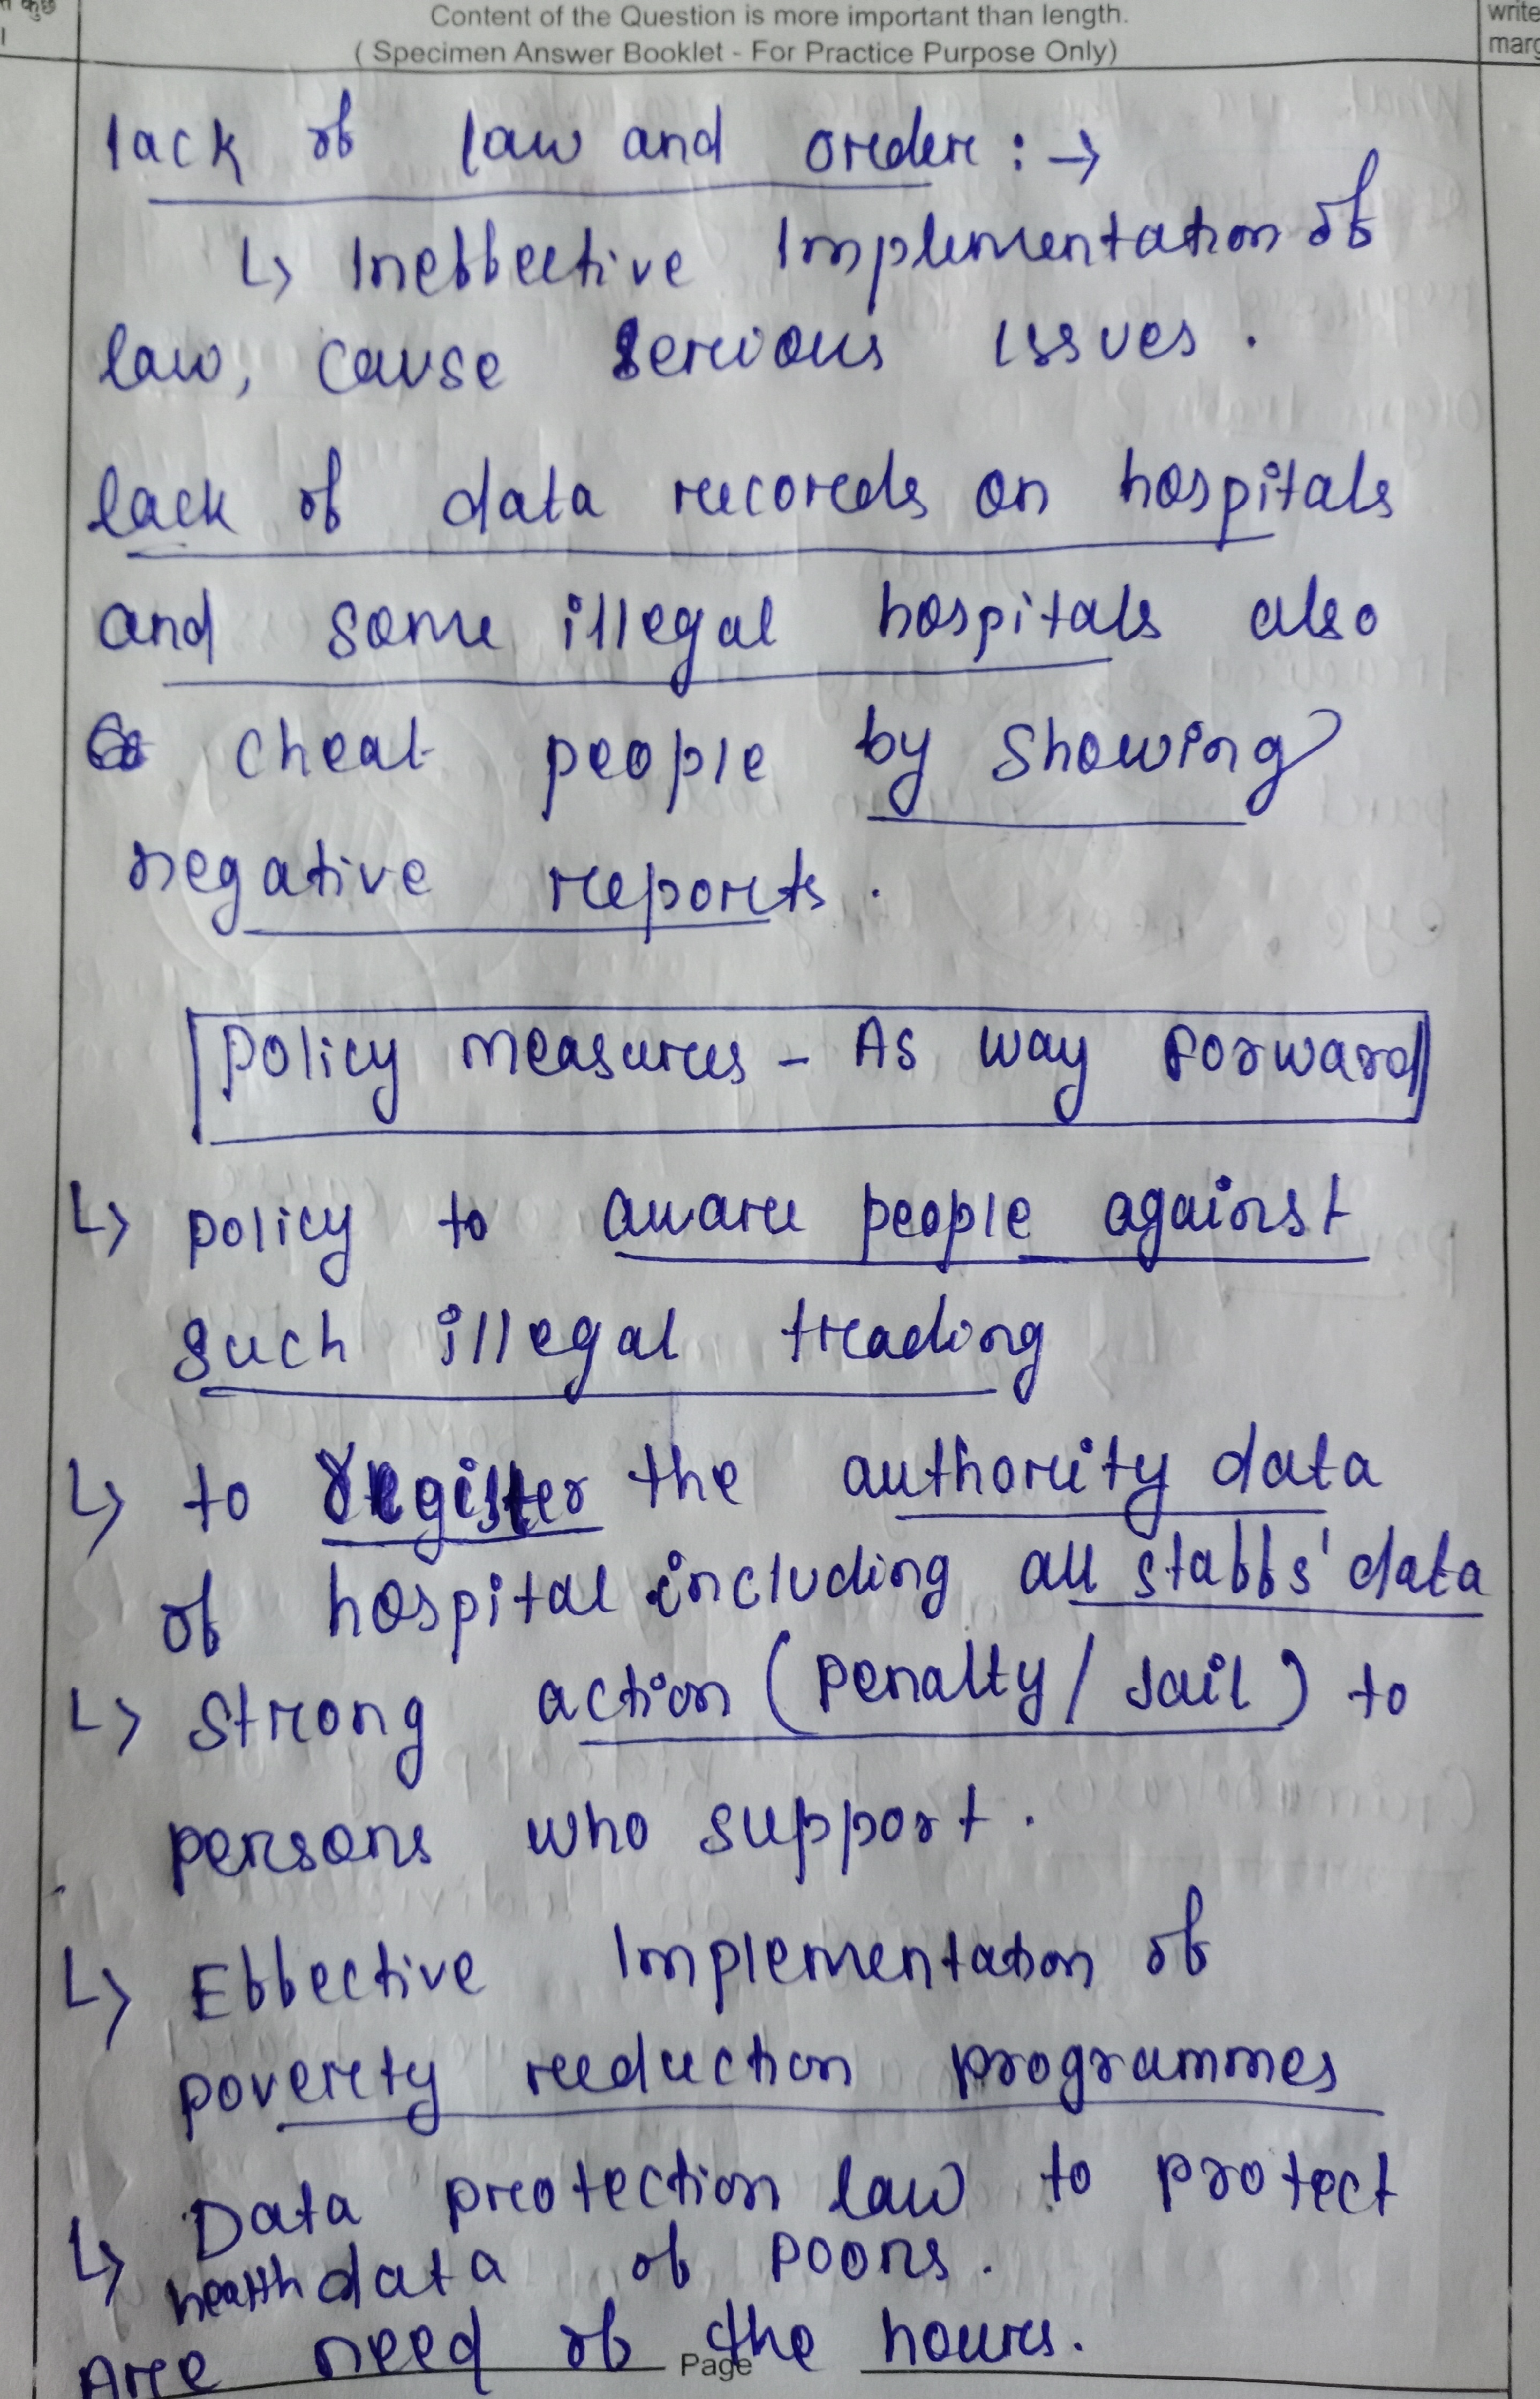 Content of the Question is more important than length.
( Specimen Answer Booklet - For Practice Purpose Only)
write
marg
lack of law and order : →
↳ Ineffective Implementation of
law, cause serious issues .
lack of data records on hospitals
and some illegal hospitals also
cheat people by showing
negative reports .
Policy measures - As way Forward
↳ policy to aware people against
such illegal trading
↳ to register the authority data
of hospital including all staffs' data
↳ Strong action ( Penalty / Jail ) to
persons who support .
↳ Effective Implementation of
poverty reduction programmes
↳ Data protection law to protect
health data of poors .
Are need of the hours .
Page